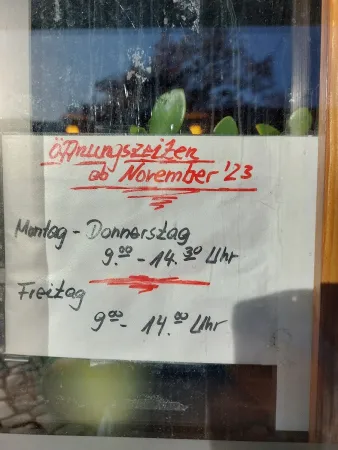 Öffnungszeiten
ab November '23
Montag - Donnerstag
9.00 - 14.30 Uhr
Freitag
9.00 - 14.00 Uhr